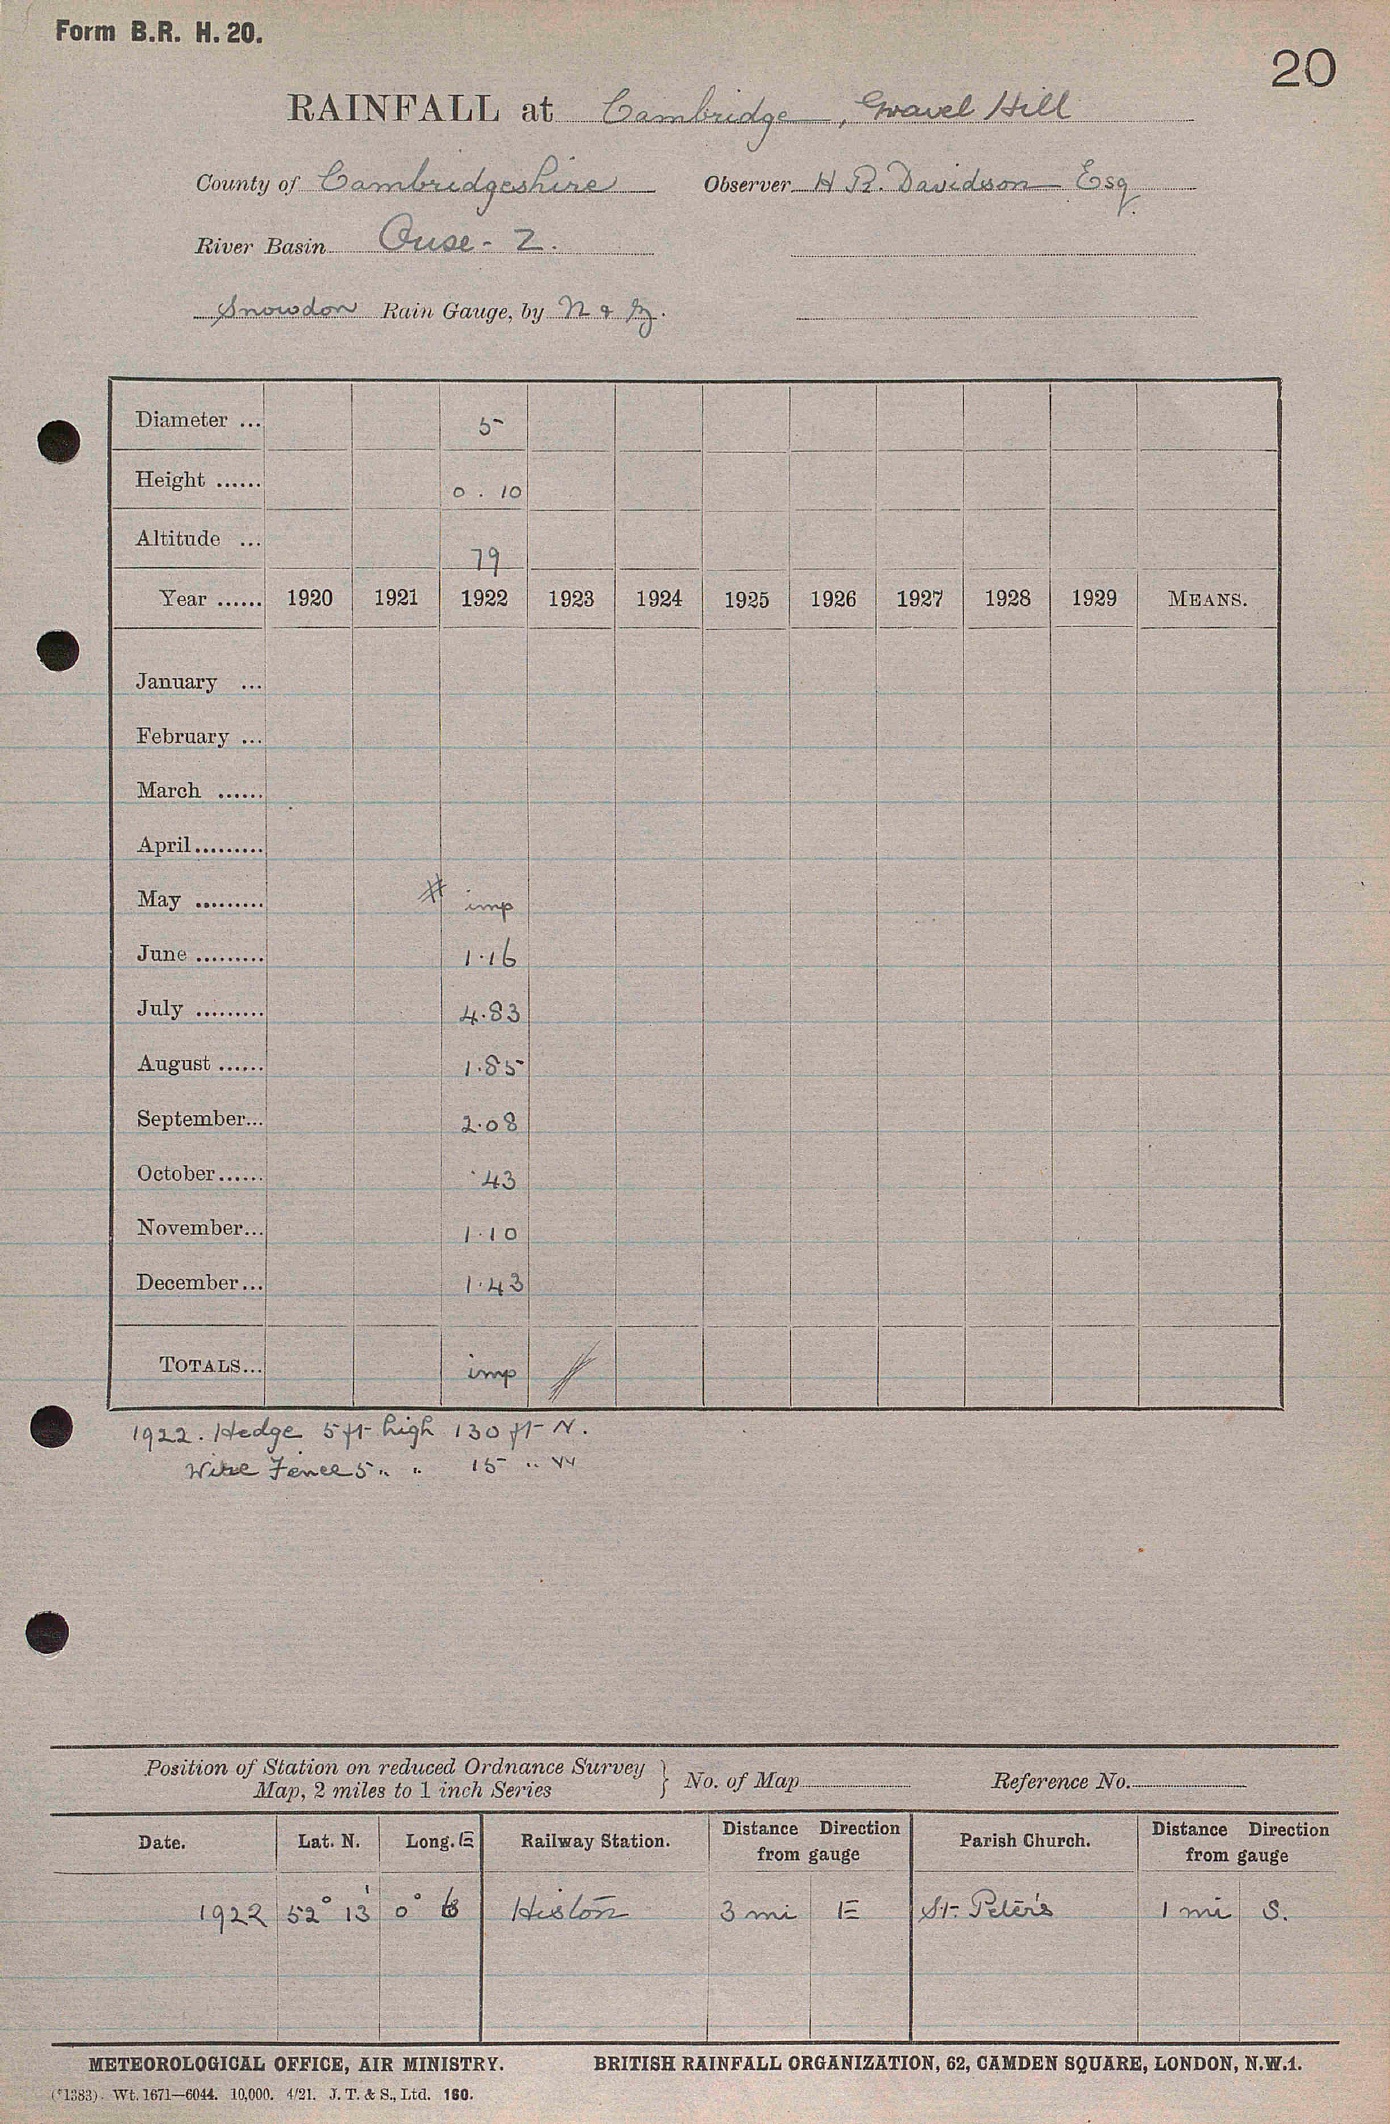 Form B.R. H. 20.
20
RAINFALL at Cambridge, Gravel Hill
County of Cambridgeshire Observer H R. Davidson Esq.
River Basin Ouse - 2.
Snowdon Rain Gauge, by N & Z.
Diameter ... 5
Height ...... 0 . 10
Altitude ... 79
Year ...... 1920 1921 1922 1923 1924 1925 1926 1927 1928 1929 MEANS.
January ...
February ...
March ......
April.........
May ......... # imp
June ......... 1.16
July ......... 4.83
August ...... 1.85
September... 2.08
October...... .43
November... 1.10
December... 1.43
TOTALS... imp
1922. Hedge 5 ft high 130 ft N.
Wire Fence 5 " " 15 " W
Position of Station on reduced Ordnance Survey
Map, 2 miles to 1 inch Series } No. of Map Reference No.
Date. Lat. N. Long. E Railway Station. Distance Direction from gauge Parish Church. Distance Direction from gauge
1922 52° 13' 0° Histon 3 mi E St. Peter's 1 mi S.
METEOROLOGICAL OFFICE, AIR MINISTRY. BRITISH RAINFALL ORGANIZATION, 62, CAMDEN SQUARE, LONDON, N.W.1.
(*1383). Wt. 1671—6044. 10,000. 4/21. J. T. & S., Ltd. 160.